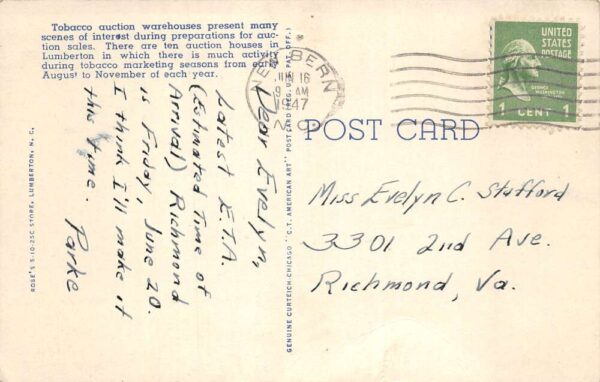 Tobacco auction warehouses present many
scenes of interest during preparations for auc-
tion sales. There are ten auction houses in
Lumberton in which there is much activity
during tobacco marketing seasons from early
August to November of each year.
Dear Evelyn,
Latest E.T.A.
(Estimated Time of
Arrival) Richmond
is Friday, June 20.
I think I'll make it
this time. Parke
ROSE'S 5-10-25C STORE, LUMBERTON, N. C.
GENUINE CURTEICH-CHICAGO "C.T. AMERICAN ART" POST CARD (REG. U.S. PAT. OFF.)
NEW BERN
JUN 16
9 AM
1947
N.C.
UNITED
STATES
POSTAGE
GEORGE
WASHINGTON
1 CENT 1
POST CARD
Miss Evelyn C. Stafford
3301 2nd Ave.
Richmond, Va.